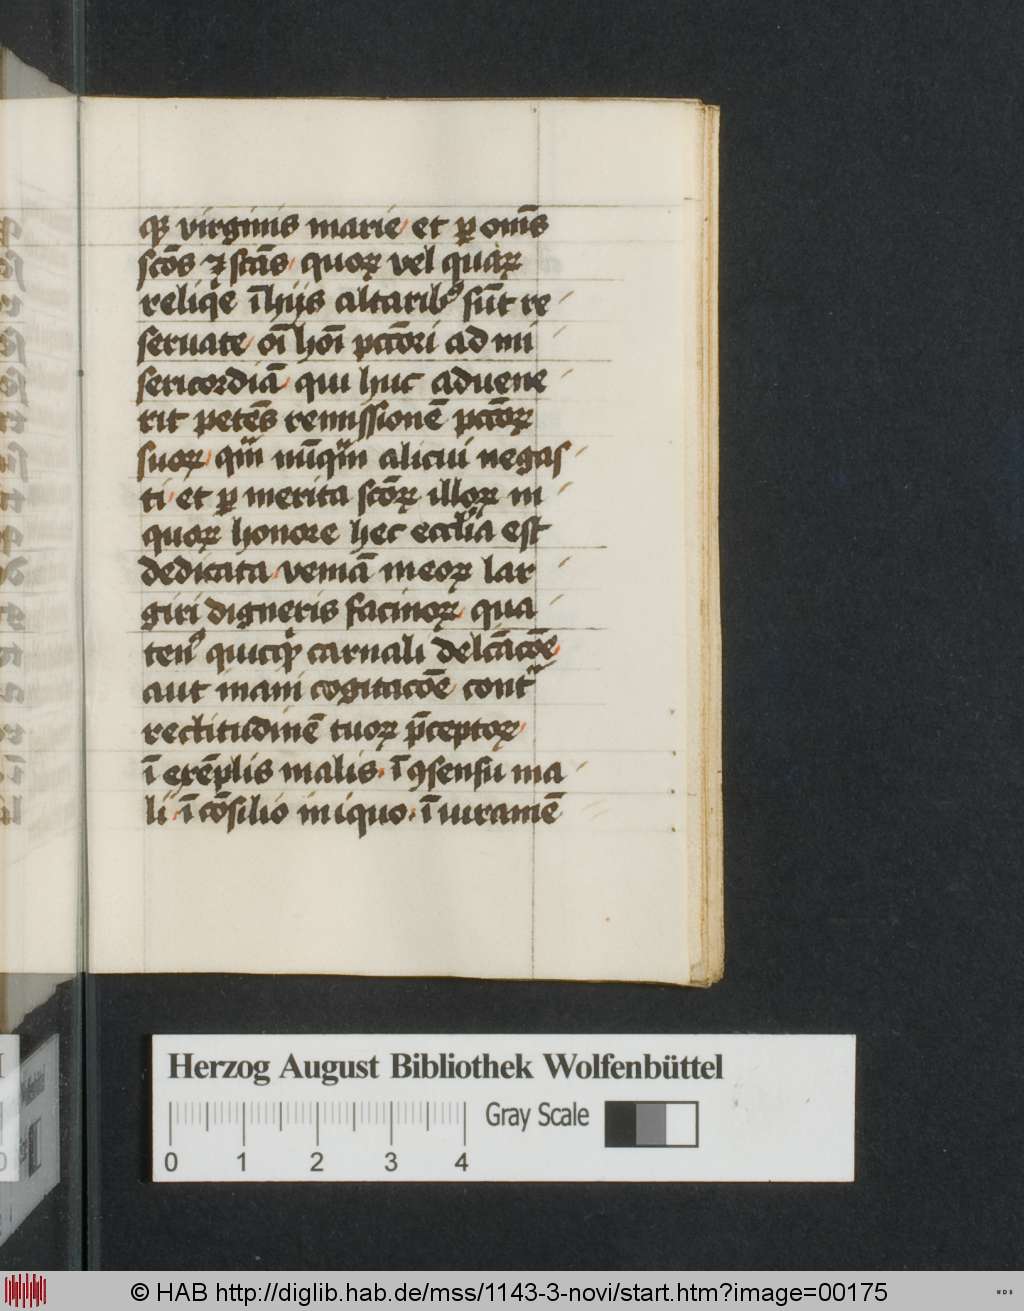 qꝫ virginis marie et ꝑ om̄s
scōs ⁊ scās quoꝝ vel quaꝝ
reliqͥe ī hijs altaribꝰ sūt re
seruate oī hoī pctōri ad mi
sericordiā qui huc aduene
rit petēs remissionē pctōꝝ
suoꝝ qm̄ nūqͣm alicui negas
ti et ꝑ merita scōꝝ illoꝝ in
quoꝝ honore hec ecclͥia est
dedicata veniā meoꝝ lar
giri digneris facinoꝝ qua
tenꝰ quicqͥd carnali delcācōe
aut inani cogitacōe contͣ
rectitudinē tuoꝝ p̄ceptoꝝ
ī exēplis malis ī ꝯsensu ma
li ī cōsilio iniquo ī iuramē
Herzog August Bibliothek Wolfenbüttel
Gray Scale
0 1 2 3 4
© HAB http://diglib.hab.de/mss/1143-3-novi/start.htm?image=00175